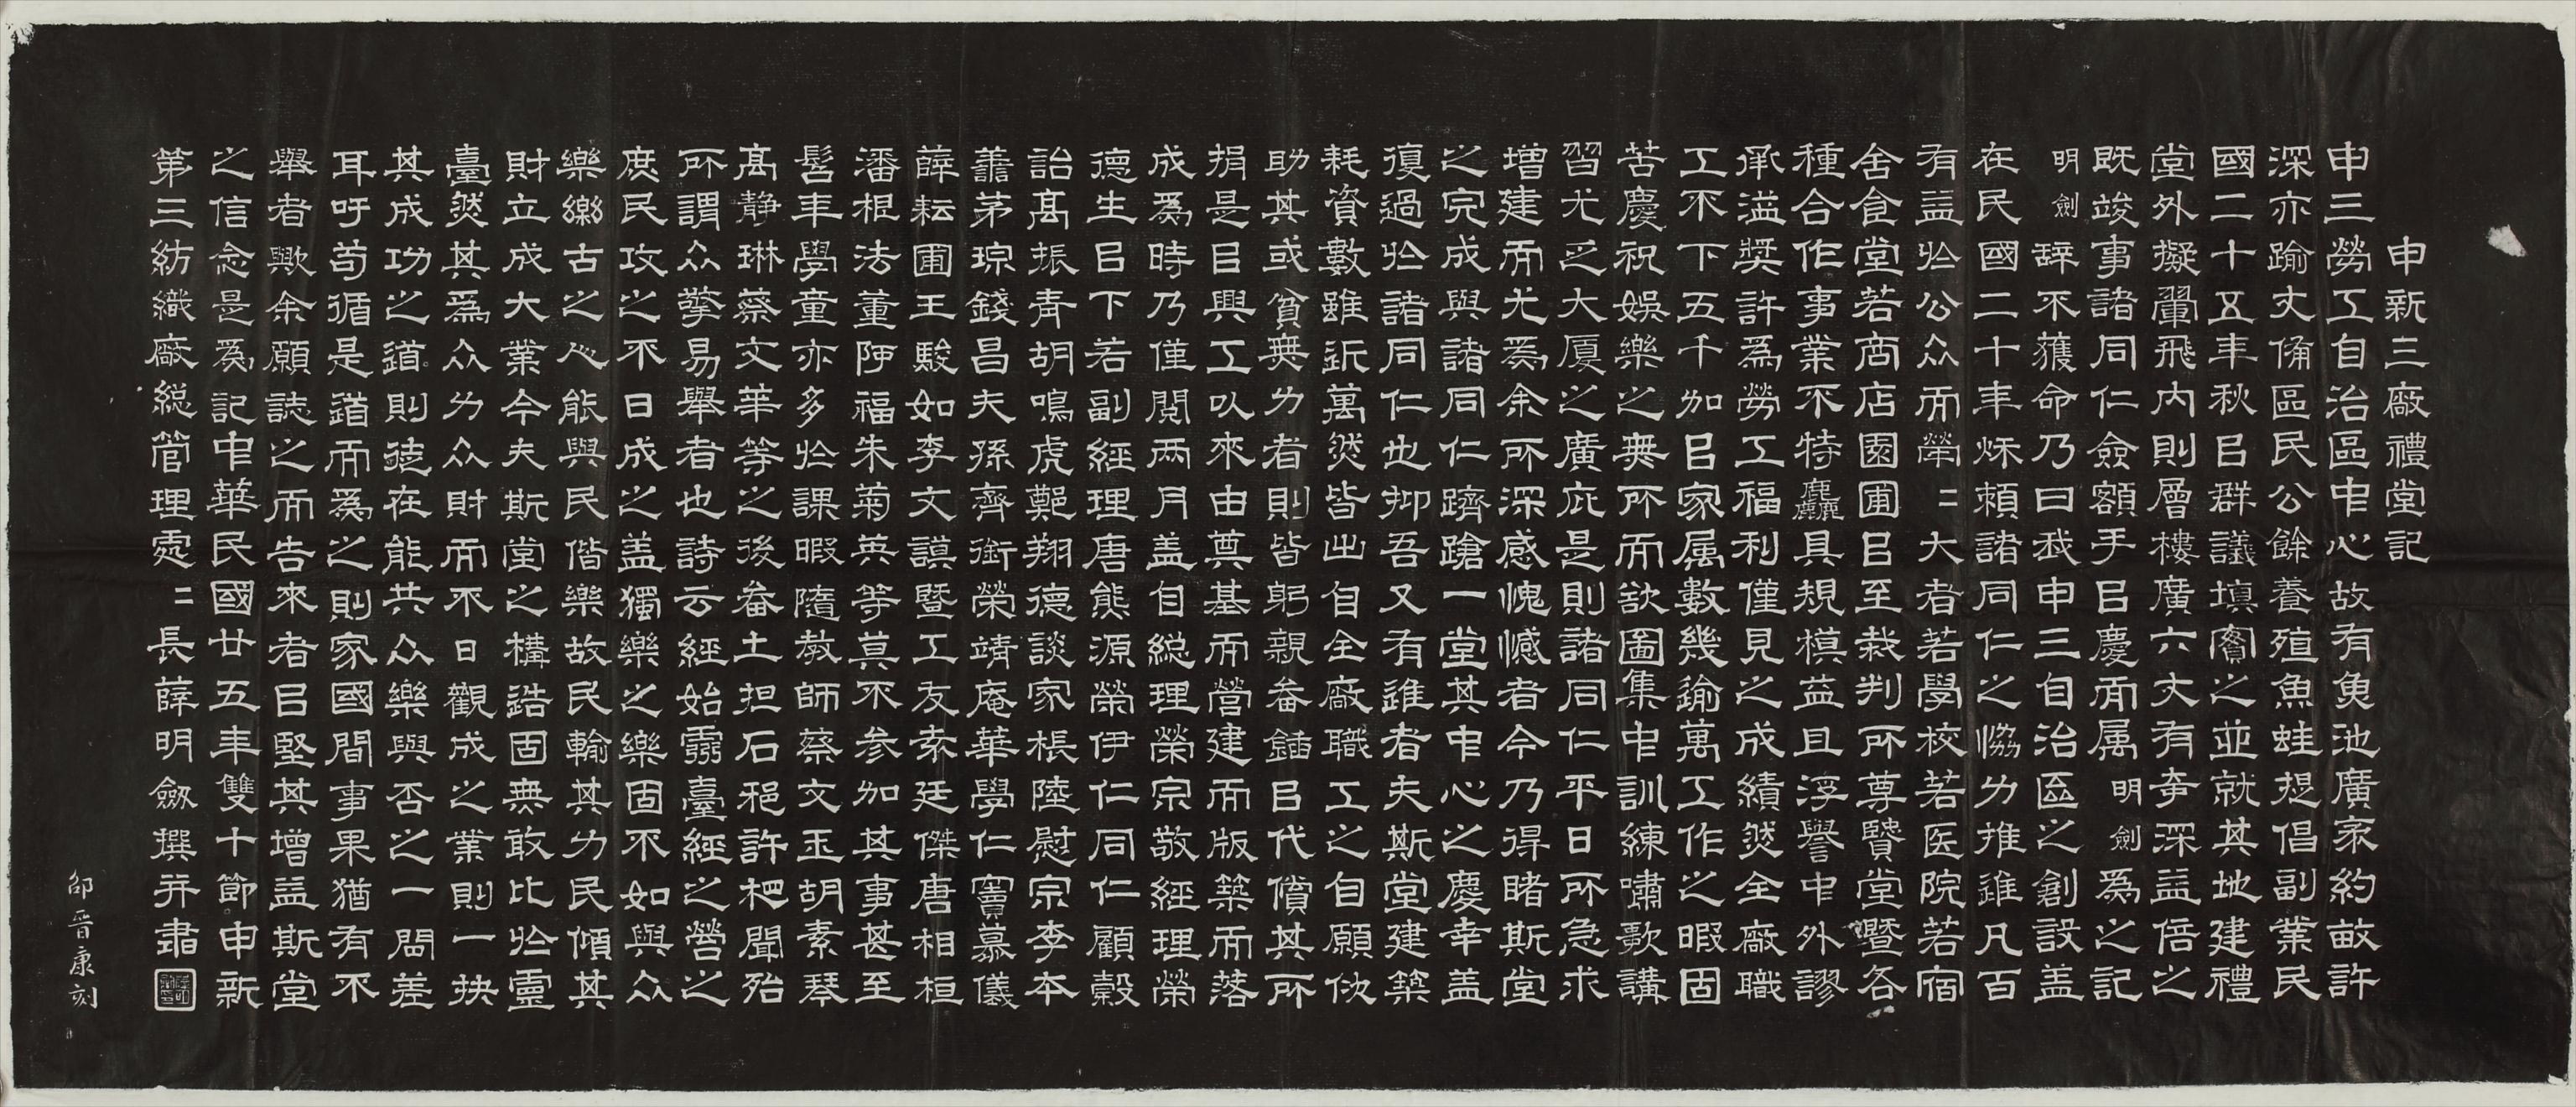 申新三廠禮堂記
申三勞工自治區中心故有魚池廣袤約畝許
深亦踰丈俻區民公餘養殖魚蛙提倡副業民
國二十五年秋㠯群議填窗之並就其地建禮
堂外擬翬飛內則層樓廣六丈有奇深益倍之
既竣事諸同仁僉額手㠯慶而属明劍為之記
明劍辞不獲命乃曰我申三自治區之創設盖
在民國二十年秌頼諸同仁之恊力推進凡百
有益於公众而犖〻大者若學校若医院若宿
舍食堂若商店園圃㠯至裁判所尊賢堂暨各
種合作事業不特麤具規模益且浮譽中外謬
承溢奬許為勞工福利僅見之成績然全廠職
工不下五千加㠯家属數幾逾萬工作之暇固
苦慶祝娛樂之無所而欲圖集中訓練嘯歌講
習尤乏大厦之廣庇是則諸同仁平日所急求
增建而尤為余所深感愧憾者今乃得睹斯堂
之完成與諸同仁躋蹌一堂其中心之慶幸盖
復過於諸同仁也抑吾又有進者夫斯堂建築
耗資數雖釿萬然皆出自全廠職工之自願佽
助其或貧無力者則皆躬親畚鍤㠯代償其所
捐是㠯興工以來由奠基而營建而版築而落
成為時乃僅閱兩月盖自総理榮宗敬經理榮
德生㠯下若副經理唐熊源榮伊仁同仁顧穀
詒高振青胡鳴虎鄭翔德談家棖陸慰宗李本
蕭茅琮錢昌夫孫齊銜榮靖庵華學仁竇慕儀
薛耘圃王駿如李文謨暨工友索廷傑唐相桓
潘根法董阿福朱菊英等莫不参加其事甚至
髫年學童亦多於課暇隨教師蔡文玉胡素琴
高静琳蔡文華等之後畚土担石䄻許杷聞殆
所謂众擎易舉者也詩云經始靈臺經之營之
庶民攻之不日成之盖獨樂之樂固不如與众
樂樂古之人能與民偕樂故民輸其力民傾其
財立成大業今夫斯堂之構誥固無敢比於靈
臺然其為众力众財而不日觀成之業則一抉
其成功之道則徳在能共众樂與否之一間差
耳吁苟循是道而為之則家國間事果猶有不
舉者歟余願誌之而告來者㠯堅其增益斯堂
之信念是為記中華民國廿五年雙十節申新
第三紡織廠総管理處〻長薛明劍撰并書
邵晋康刻